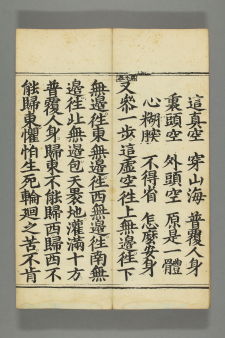 這真空　穿山海　普覆人身
裏頭空　外頭空　原是一體
心糊朦　不得省　怎麼安身
又參一步這虛空徃上無邊徃下
無邊徃東無邊徃西無邊徃南無
邊徃北無邊包天裹地灌滿十方
普覆人身歸東不能歸西歸西不
能歸東懼怕生死輪廻之苦不肯